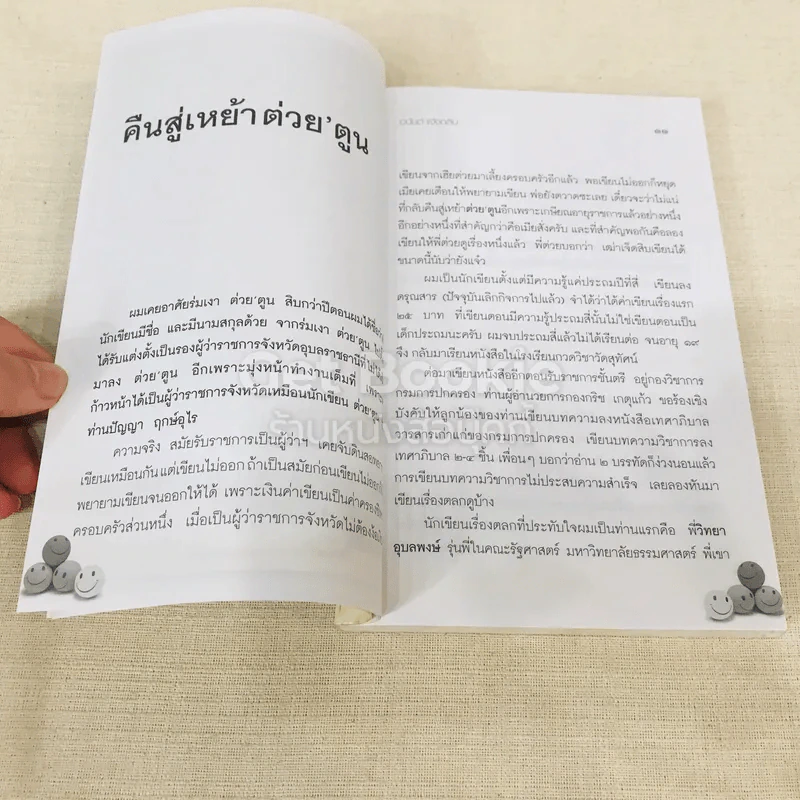 คืนสู่เหย้า ต่วย'ตูน
ผมเคยอาศัยร่มเงา ต่วย'ตูน สิบกว่าปีตอนผมได้ชื่อว่า
นักเขียนมีชื่อ และมีนามสกุลด้วย จากร่มเงา ต่วย'ตูน
ได้รับแต่งตั้งเป็นรองผู้ว่าราชการจังหวัดอุบลราชธานี
มาลง ต่วย'ตูน อีกเพราะมุ่งหน้าทำงานเต็มที่ เพราะ
ก้าวหน้าได้เป็นผู้ว่าราชการจังหวัดเหมือนนักเขียน ต่วย'ตูน
ท่านปัญญา ฤกษ์อุไร
ความจริง สมัยรับราชการเป็นผู้ว่าฯ เคยจับดินสอ
เขียนเหมือนกัน แต่เขียนไม่ออก ถ้าเป็นสมัยก่อนเขียนไม่ออก
พยายามเขียนจนออกให้ได้ เพราะเงินค่าเขียนเป็นค่าครองชีพ
ครอบครัวส่วนหนึ่ง เมื่อเป็นผู้ว่าราชการจังหวัดไม่ต้อง
๑๑
เขียนจากเฮียต่วยมาเลี้ยงครอบครัวอีกแล้ว พอเขียนไม่ออกก็หยุด
เมียเคยเตือนให้พยายามเขียน พ่อยังตวาดซะเลย เดี๋ยวจะว่าไม่แน่
ที่กลับคืนสู่เหย้าต่วย'ตูนอีกเพราะเกษียณอายุราชการแล้วอย่างหนึ่ง
อีกอย่างหนึ่งที่สำคัญกว่าคือเมียสั่งครับ และที่สำคัญพอกันคือลอง
เขียนให้พี่ต่วยดูเรื่องหนึ่งแล้ว พี่ต่วยบอกว่า เฒ่าเจ็ดสิบเขียนได้
ขนาดนี้นับว่ายังแจ๋ว
ผมเป็นนักเขียนตั้งแต่มีความรู้แค่ประถมปีที่สี่ เขียนลง
ดรุณสาร (ปัจจุบันเลิกกิจการไปแล้ว) จำได้ว่าได้ค่าเขียนเรื่องแรก
๒๕ บาท ที่เขียนตอนมีความรู้ประถมสี่นั้นไม่ใช่เขียนตอนเป็น
เด็กประถมนะครับ ผมจบประถมสี่แล้วไม่ได้เรียนต่อ จนอายุ ๑๙
จึง กลับมาเรียนหนังสือในโรงเรียนกวดวิชาวัดสุทัศน์
ต่อมาเขียนหนังสืออีกตอนรับราชการชั้นตรี อยู่กองวิชาการ
กรมการปกครอง ท่านผู้อำนวยการกองกริช เกตุแก้ว ขอร้องเชิง
บังคับให้ลูกน้องของท่านเขียนบทความลงหนังสือเทศาภิบาล
วารสารเก่าแก่ของกรมการปกครอง เขียนบทความวิชาการลง
เทศาภิบาล ๒-๔ ชิ้น เพื่อนๆ บอกว่าอ่าน ๒ บรรทัดก็ง่วงนอนแล้ว
การเขียนบทความวิชาการไม่ประสบความสำเร็จ เลยลองหันมา
เขียนเรื่องตลกดูบ้าง
นักเขียนเรื่องตลกที่ประทับใจผมเป็นท่านแรกคือ พี่วิทยา
อุบลพงษ์ รุ่นพี่ในคณะรัฐศาสตร์ มหาวิทยาลัยธรรมศาสตร์ พี่เขา
ร้านหนังสือเก่า